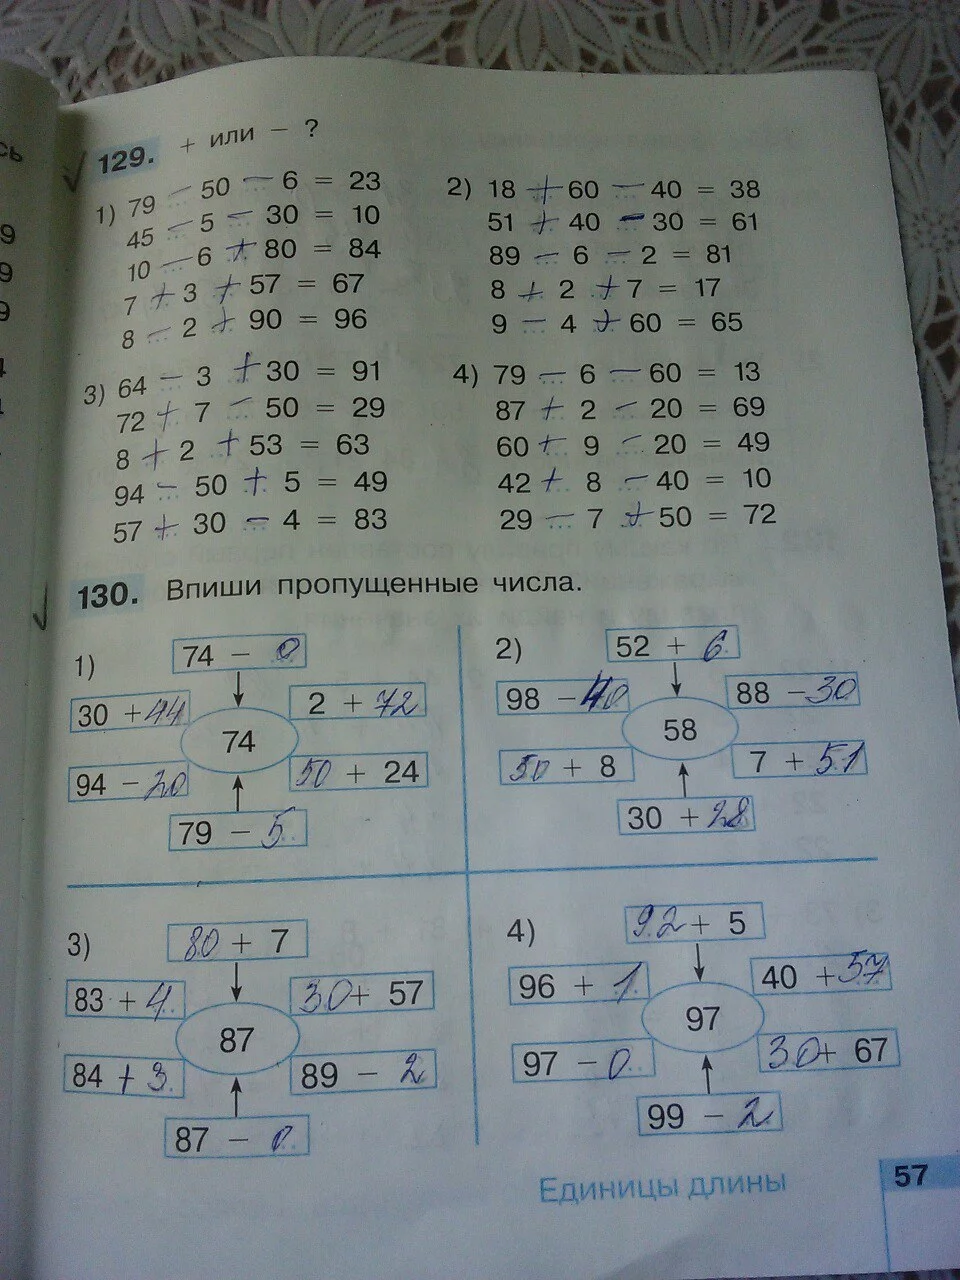 129. + или – ?
1) 79 – 50 – 6 = 23
45 – 5 – 30 = 10
10 – 6 + 80 = 84
7 + 3 + 57 = 67
8 – 2 + 90 = 96
2) 18 + 60 – 40 = 38
51 + 40 – 30 = 61
89 – 6 – 2 = 81
8 + 2 + 7 = 17
9 – 4 + 60 = 65
3) 64 – 3 + 30 = 91
72 + 7 – 50 = 29
8 + 2 + 53 = 63
94 – 50 + 5 = 49
57 + 30 – 4 = 83
4) 79 – 6 – 60 = 13
87 + 2 – 20 = 69
60 + 9 – 20 = 49
42 + 8 – 40 = 10
29 – 7 + 50 = 72
130. Впиши пропущенные числа.
1)
74 – 0
30 + 44
2 + 72
74
94 – 20
50 + 24
79 – 5
2)
52 + 6
98 – 40
88 – 30
58
50 + 8
7 + 51
30 + 28
3)
80 + 7
83 + 4
30 + 57
87
84 + 3
89 – 2
87 – 0
4)
92 + 5
96 + 1
40 + 57
97
97 – 0
30 + 67
99 – 2
Единицы длины
57